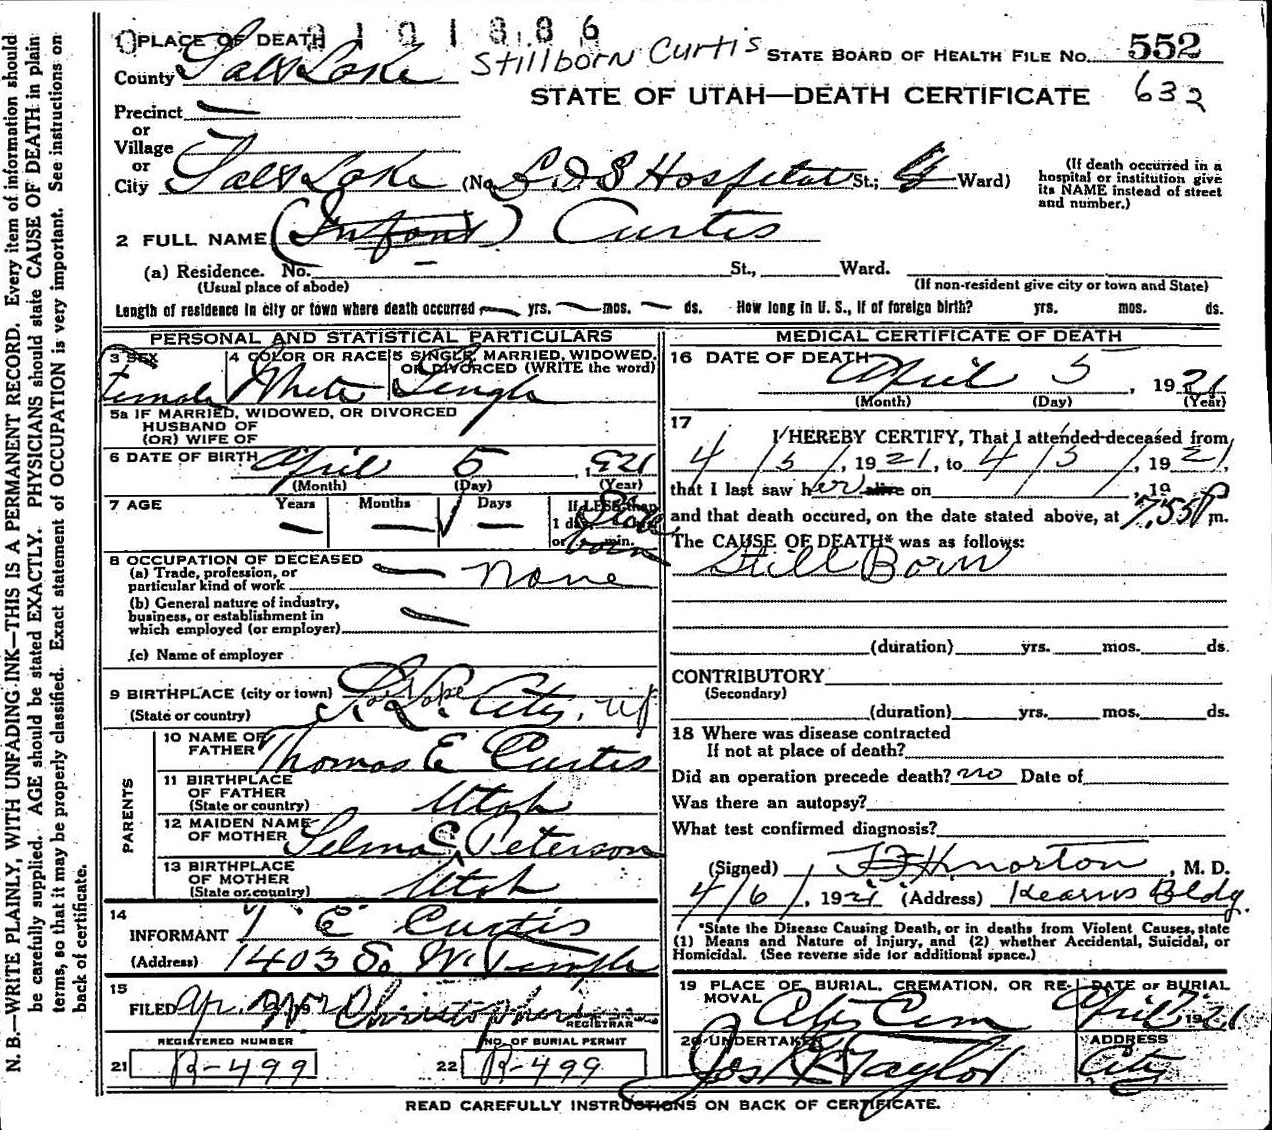 N. B.—WRITE PLAINLY, WITH UNFADING INK—THIS IS A PERMANENT RECORD. Every item of information should
be carefully supplied. AGE should be stated EXACTLY. PHYSICIANS should state CAUSE OF DEATH in plain
terms, so that it may be properly classified. Exact statement of OCCUPATION is very important. See instructions on
back of certificate.
1 PLACE OF DEATH
County Salt Lake
Stillborn Curtis
STATE BOARD OF HEALTH FILE No. 552
STATE OF UTAH—DEATH CERTIFICATE 632
Precinct
or
Village
or
City Salt Lake (No. L D S Hospital St.; Ward)
(If death occurred in a
hospital or institution give
its NAME instead of street
and number.)
2 FULL NAME (Infant) Curtis
(a) Residence. No. St., Ward.
(Usual place of abode) (If non-resident give city or town and State)
Length of residence in city or town where death occurred — yrs. — mos. — ds. How long in U. S., if of foreign birth? yrs. mos. ds.
PERSONAL AND STATISTICAL PARTICULARS
3 SEX 4 COLOR OR RACE 5 SINGLE, MARRIED, WIDOWED,
OR DIVORCED (WRITE the word)
Female White Single
5a IF MARRIED, WIDOWED, OR DIVORCED
HUSBAND OF
(OR) WIFE OF
6 DATE OF BIRTH April 5, 1921
(Month) (Day) (Year)
7 AGE Years Months Days If LESS than
1 day,
or min.
Still born
8 OCCUPATION OF DECEASED
(a) Trade, profession, or
particular kind of work none
(b) General nature of industry,
business, or establishment in
which employed (or employer)
(c) Name of employer
9 BIRTHPLACE (city or town) S. L. City, Ut
(State or country)
PARENTS
10 NAME OF
FATHER Thomas E Curtis
11 BIRTHPLACE
OF FATHER
(State or country) Utah
12 MAIDEN NAME
OF MOTHER Selma C Peterson
13 BIRTHPLACE
OF MOTHER
(State or country) Utah
14
INFORMANT T E Curtis
(Address) 1403 So W. Temple
15
FILED Apr
REGISTRAR
REGISTERED NUMBER NO. OF BURIAL PERMIT
21 R-499 22 R-499
MEDICAL CERTIFICATE OF DEATH
16 DATE OF DEATH
April 5, 1921
(Month) (Day) (Year)
17
I HEREBY CERTIFY, That I attended deceased from
4/5/, 1921, to 4/5/, 1921,
that I last saw her alive on , 19
and that death occured, on the date stated above, at 7.55 P m.
The CAUSE OF DEATH* was as follows:
Still Born
(duration) yrs. mos. ds.
CONTRIBUTORY
(Secondary)
(duration) yrs. mos. ds.
18 Where was disease contracted
If not at place of death?
Did an operation precede death? no Date of
Was there an autopsy?
What test confirmed diagnosis?
(Signed) Norton, M. D.
4/6/, 1921 (Address) Kearns Bldg.
*State the Disease Causing Death, or in deaths from Violent Causes, state
(1) Means and Nature of Injury, and (2) whether Accidental, Suicidal, or
Homicidal. (See reverse side for additional space.)
19 PLACE OF BURIAL, CREMATION, OR RE- DATE OF BURIAL
MOVAL City Cem April 7 1921
20 UNDERTAKER ADDRESS
Jos Taylor City
READ CAREFULLY INSTRUCTIONS ON BACK OF CERTIFICATE.